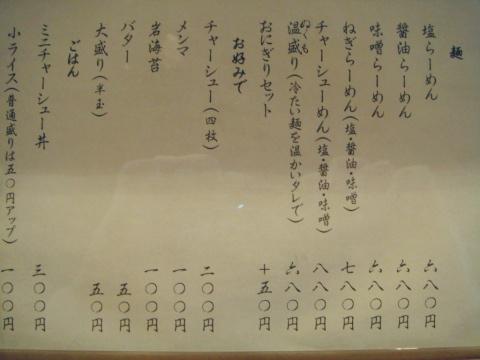 麺
塩らーめん 六八〇円
醬油らーめん 六八〇円
味噌らーめん 六八〇円
ねぎらーめん(塩・醬油・味噌) 七八〇円
チャーシューめん(塩・醬油・味噌) 八八〇円
温盛り(冷たい麺を温かいタレで) 六八〇円
ぬくも
おにぎりセット 十五〇円
お好みで
チャーシュー(四枚) 二〇〇円
メンマ 一〇〇円
岩海苔 一〇〇円
バター 五〇円
大盛り(半玉) 五〇円
ごはん
ミニチャーシュー丼 三〇〇円
小ライス(普通盛りは五〇円アップ) 一〇〇円